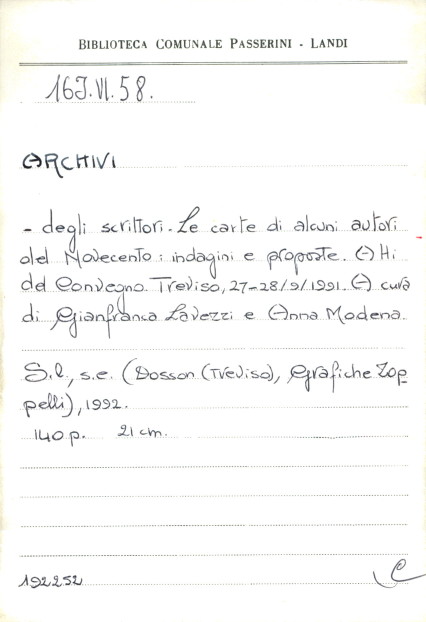 BIBLIOTECA COMUNALE PASSERINI - LANDI
16J.VI.58.
ARCHIVI
- degli scrittori. Le carte di alcuni autori
del Novecento: indagini e proposte. Atti
del Convegno. Treviso, 27-28/9/1991. A cura
di Gianfranca Lavezzi e Anna Modena.
S.l., s.e. (Dosson (Treviso), Grafiche Zop
pelli), 1992.
140 p. 21 cm.
192252 C